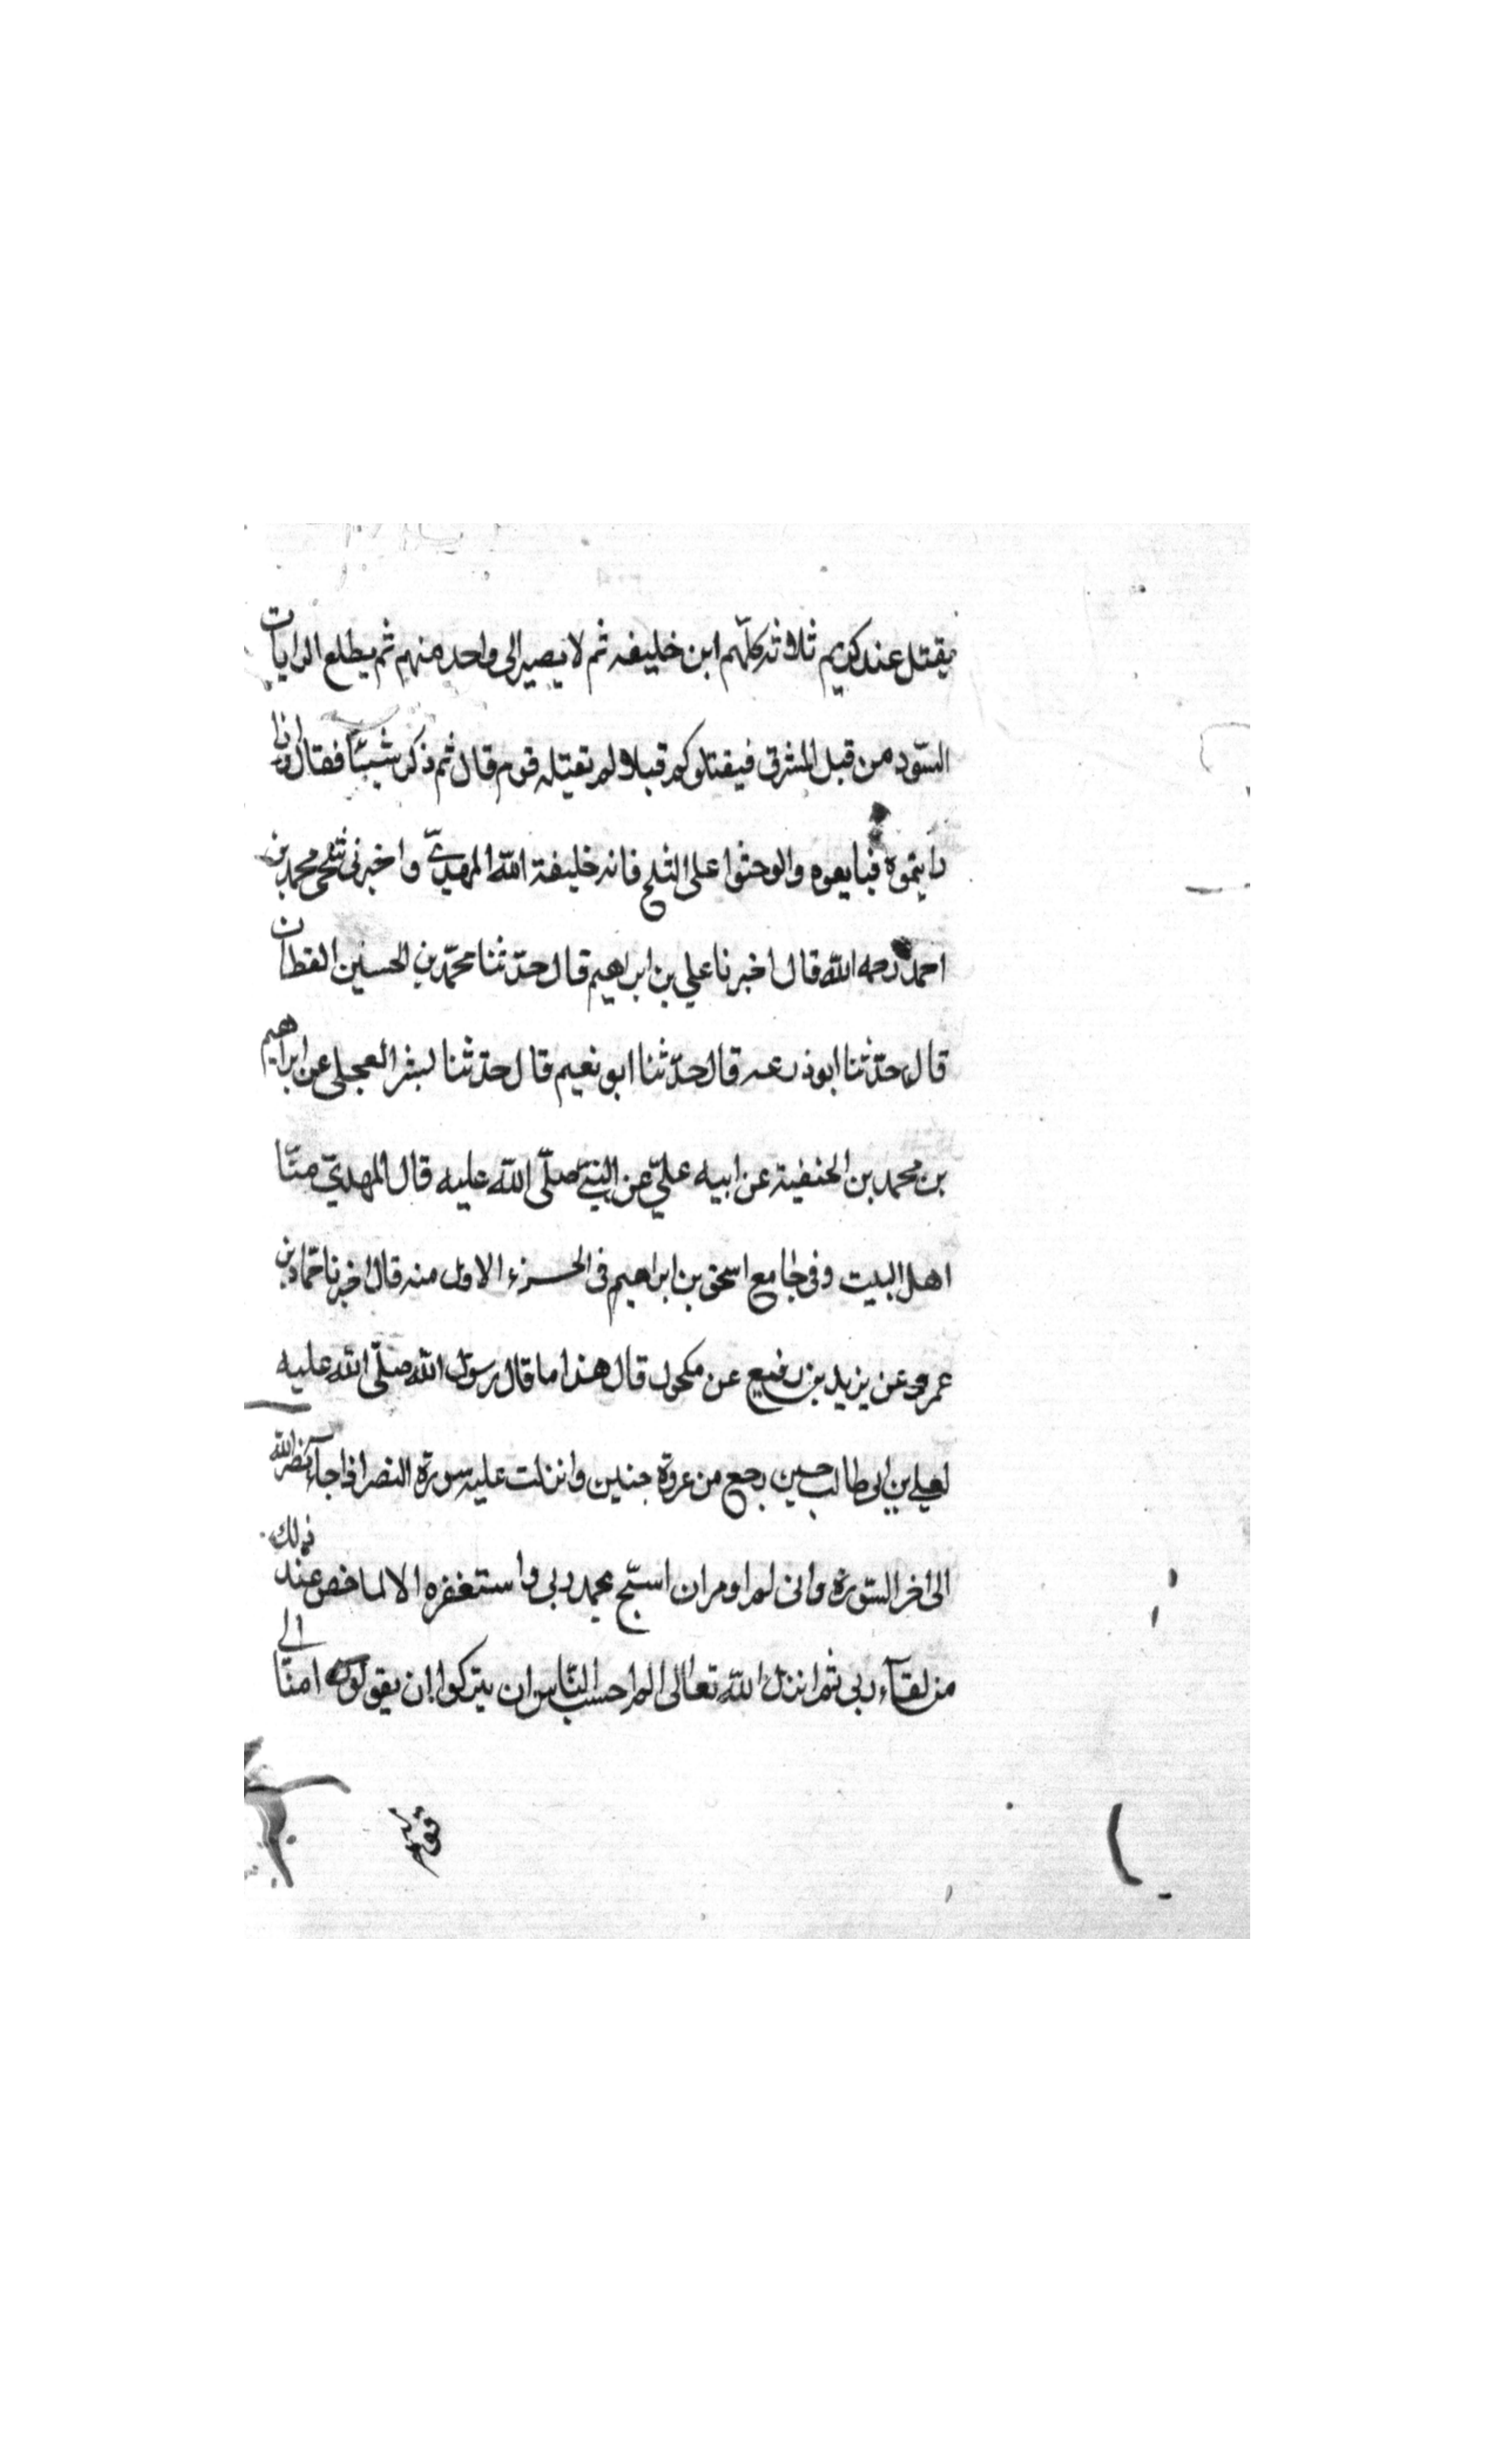 يقتتل عند كريم ثلاثة كلّهم ابن خليفه ثم لا يصير الى واحد منهم ثم يطلع الرايات
السّود من قبل المشرق فيقتلوكم قبلا ولم تقتله قوم قال ثم ذكر شيئا فقال اذا
رايتموه فبايعوه والوحثوا على الثلج فانه خليفة الله المهديّ واخبرنى محمد بن
احمد رحمه الله قال اخبرنا علي بن ابراهيم قال حدّثنا محمّد بن الحسين القطان
قال حدّثنا ابوذرعه قال حدّثنا ابو نعيم قال حدثنا بشر العجلى عن ابراهيم
بن محمد بن الحنفية عن ابيه عليّ عن النبيّ صلّى الله عليه قال المهديّ منّا
اهل البيت وفى جامع اسحق بن ابراهيم فى الجزء الاول منه قال اخبرنا حمّاد بن
عمرو عن يزيد بن رفيع عن مكحول قال هذا ما قال رسول الله صلّى الله عليه
لعلي بن ابى طالب حين رجع من عروة حنين وانزلت عليه سورة النصر اذا جاء نصر الله
الى اخر السّورة وانى لم اومر ان اسبّح بحمد ربى واستغفره الا لما خص عند ذلك
من لقاء ربى ثم انزل الله تعالى الم احسب النّاس ان يتركوا ان يقولوا امنّا الى
قوله